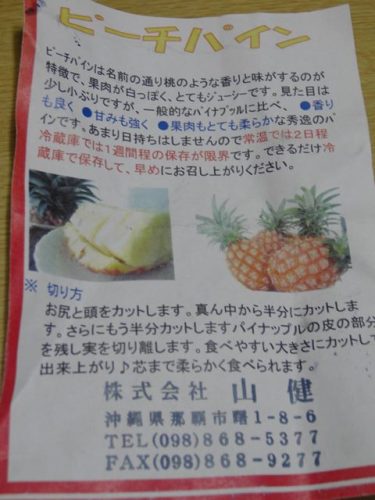 ピーチパイン
ピーチパインは名前の通り桃のような香りと味がするのが
特徴で、果肉が白っぽく、とてもジューシーです。見た目は
少し小ぶりですが、一般的なパイナップルに比べ、●香り
も良く ●甘みも強く ●果肉もとても柔らかな秀逸のパ
インです。あまり日持ちはしませんので常温では2日程
冷蔵庫では1週間程の保存が限界です。できるだけ冷
蔵庫で保存して、早めにお召し上がりください。
※ 切り方
お尻と頭をカットします。真ん中から半分にカットしま
す。さらにもう半分カットしますパイナップルの皮の部分
を残し実を切り離します。食べやすい大きさにカットして
出来上がり♪芯まで柔らかく食べられます。
株式会社 山 健
沖縄県那覇市曙1-8-6
TEL(098)868-5377
FAX(098)868-9277